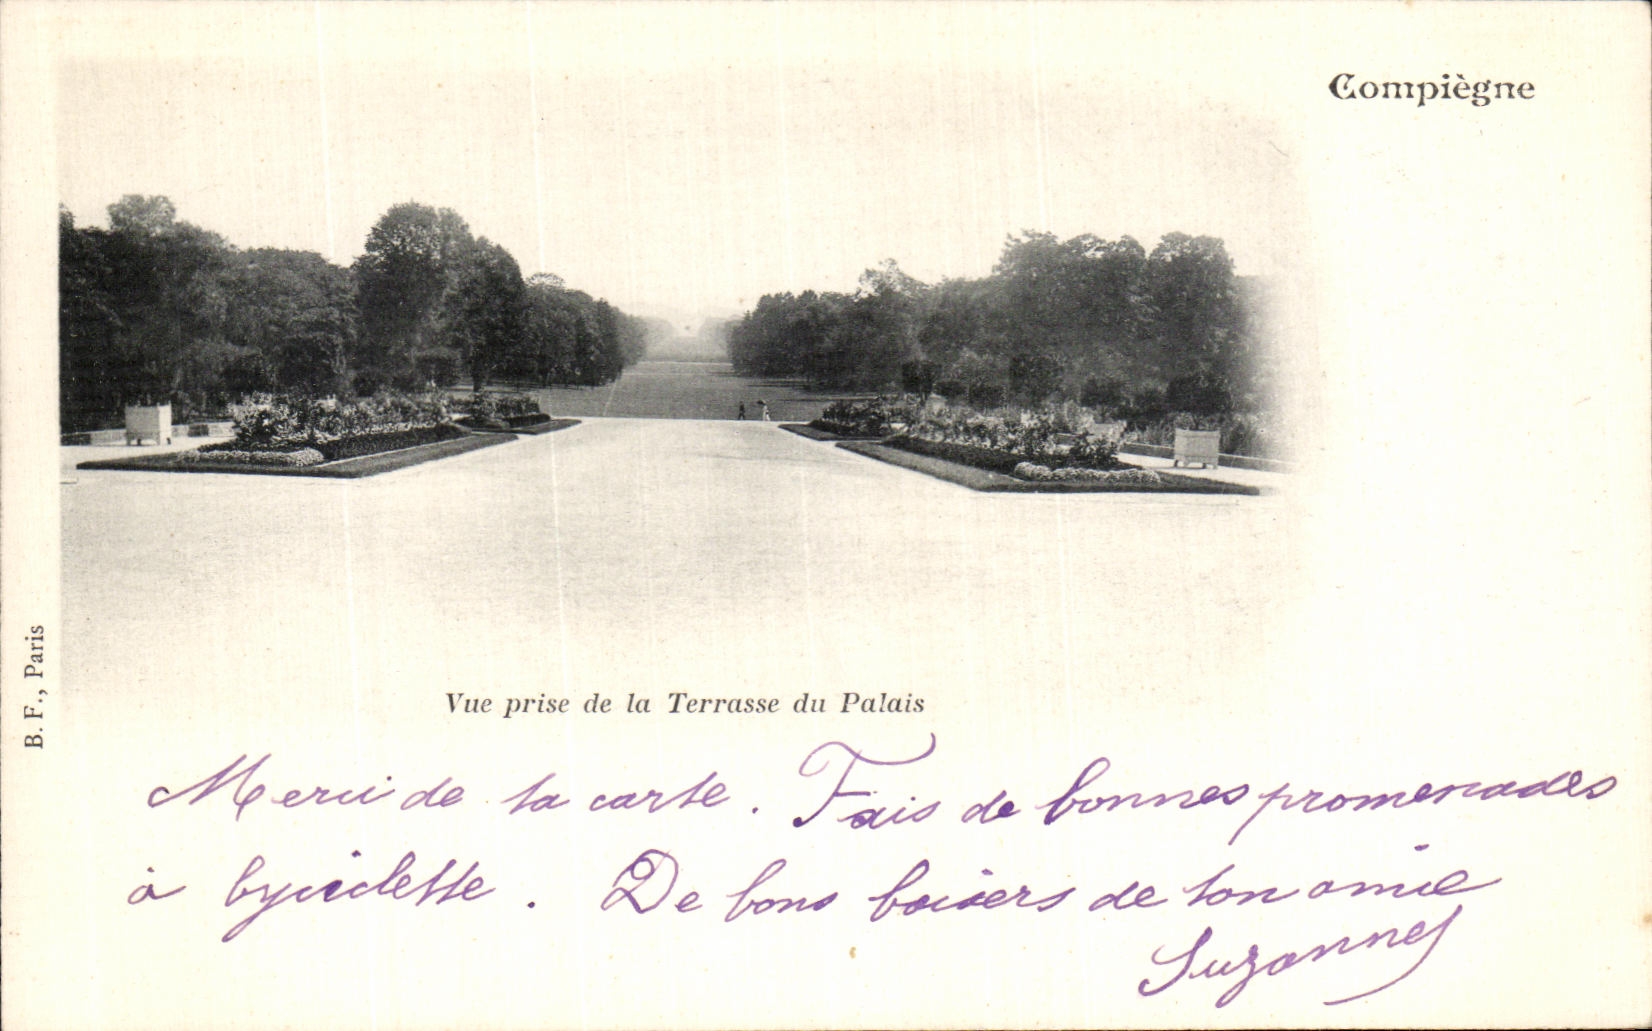 Compiègne
B. F., Paris
Vue prise de la Terrasse du Palais
Merci de ta carte. Fais de bonnes promenades
à byciclette. De bons baisers de ton amie
Suzanne